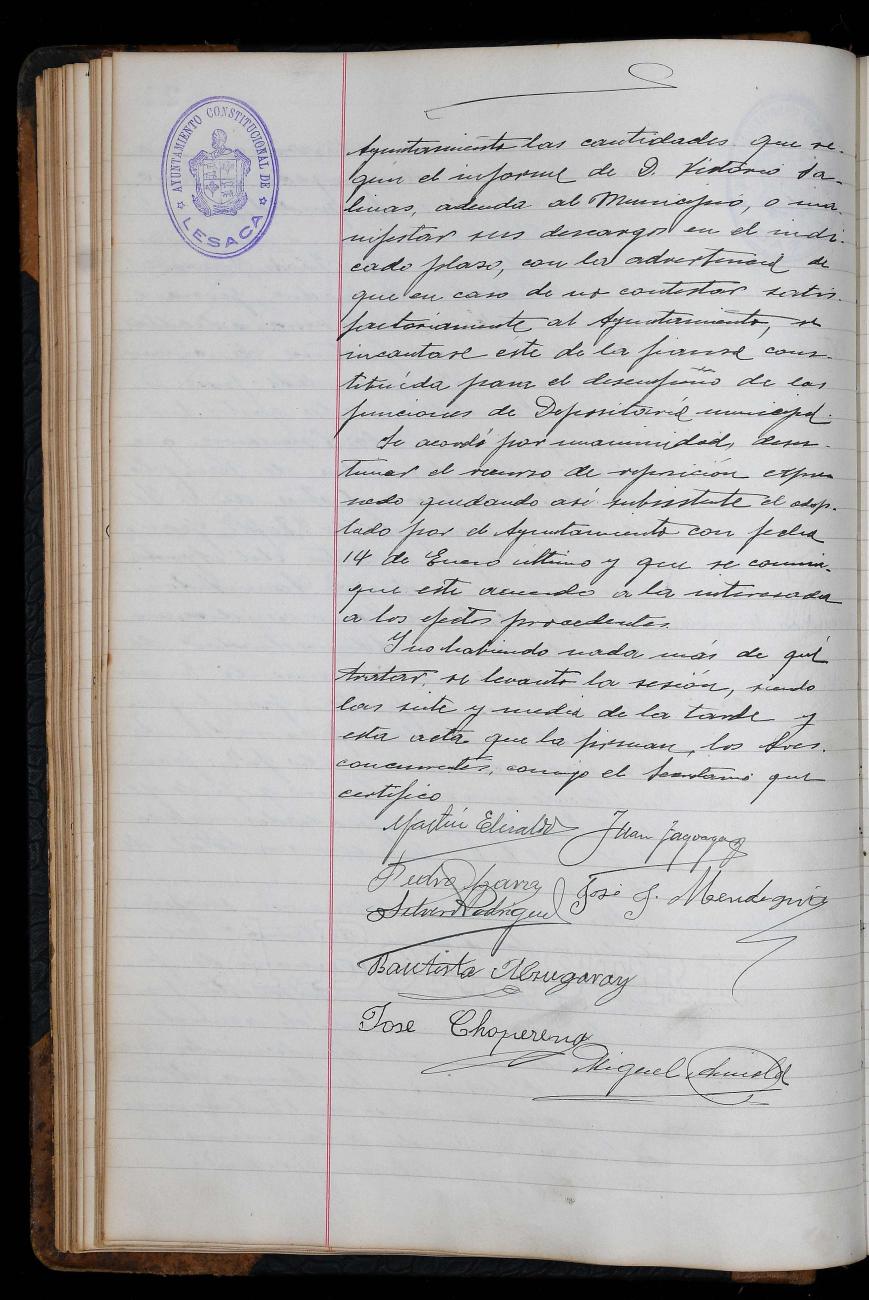 AYUNTAMIENTO CONSTITUCIONAL DE
LESACA
Ayuntamiento las cantidades que se-
gún el informe de D. Victorio Sa-
linas, adeuda al Municipio, o ma-
nifestar sus descargos en el indi-
cado plaso, con la advertencia de
que en caso de no contestar satis-
factoriamente al Ayuntamiento, se
incautará éste de la fianza cons-
tituida para el desempeño de las
funciones de Depositaría municipal.
Se acordó por unanimidad, deses-
timar el recurso de reposición expre
sado quedando así subsistente el adop-
tado por el Ayuntamiento con fecha
14 de Enero ultimo y que se comuni-
que este acuerdo a la interesada
a los efectos procedentes.
Y no habiendo nada más de qué
tratar, se levantó la sesión, siendo
las siete y media de la tarde y
esta acta que la firman, los Sres.
concurrentes, conmigo el Secretario que
certifico
Martín Elizalde Juan
Pedro
Silverio Rodríguez José J. Mendeguia
Bautista
José Choperena
Miguel